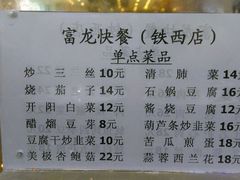 富龙快餐(铁西店)
单点菜品
炒三丝10元 清肺菜14
烧茄子14元 石锅豆腐16
开阳白菜12元 酱烧豆腐12
醋烟豆芽8元 葫芦条炒韭菜16
豆腐干炒韭菜10元 苦瓜煎蛋16
美极杏鲍菇22元 蒜蓉西兰花18